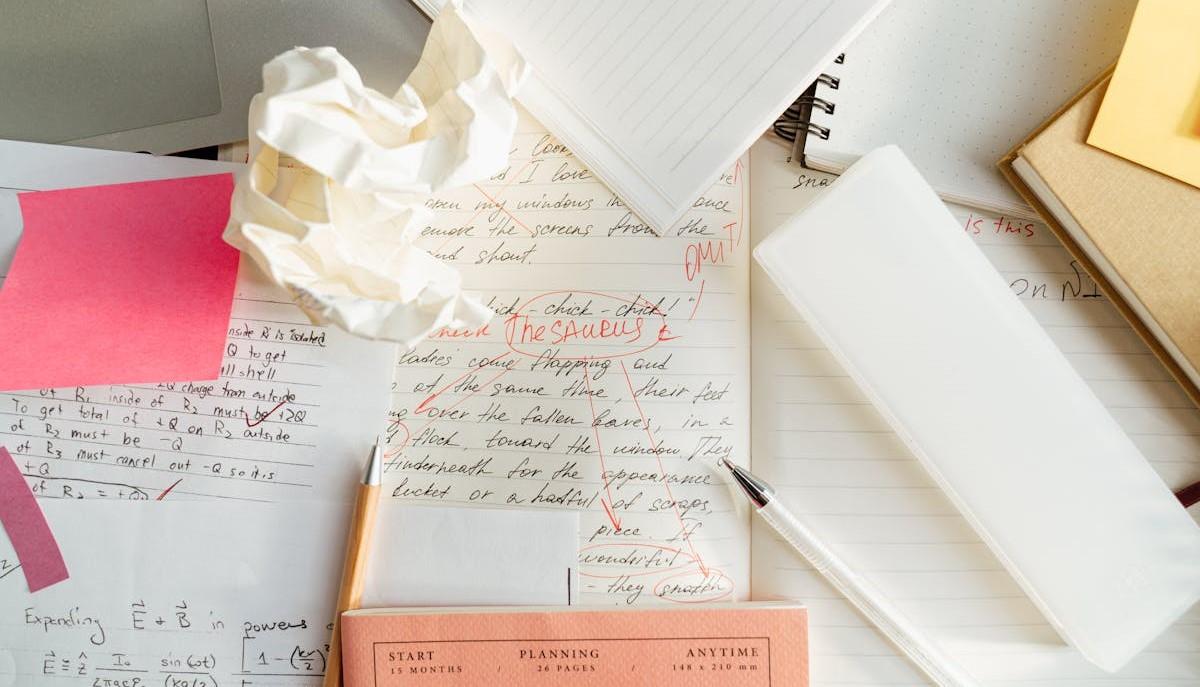 I love
open my windows in
once
emove the screens from the
and shout.
OMIT
hick - chick - chick! "
Check Thesaurus
ladies come flapping and
of the same time, their feet
over the fallen leaves, in a
flock, toward the window. They
underheath for the appearance
bucket or a hatful of scraps,
piece. If
wonderful
- they snatch
sna
is this
on
inside R is isolated
Q to get
ll shell
2Q charge from outside
of R₁ inside of R₂ must be +2Q
To get total of +Q on R₂ outside
of R₂ must be -Q
of R₃ must cancel out -Q so it.s
+Q
of R₂ = +2Q
Expanding E + B in powers
E ≅ ẑ I₀ sin(ωt)
1 - (kr/2)²
START PLANNING ANYTIME
15 MONTHS / 26 PAGES / 148 x 210 mm